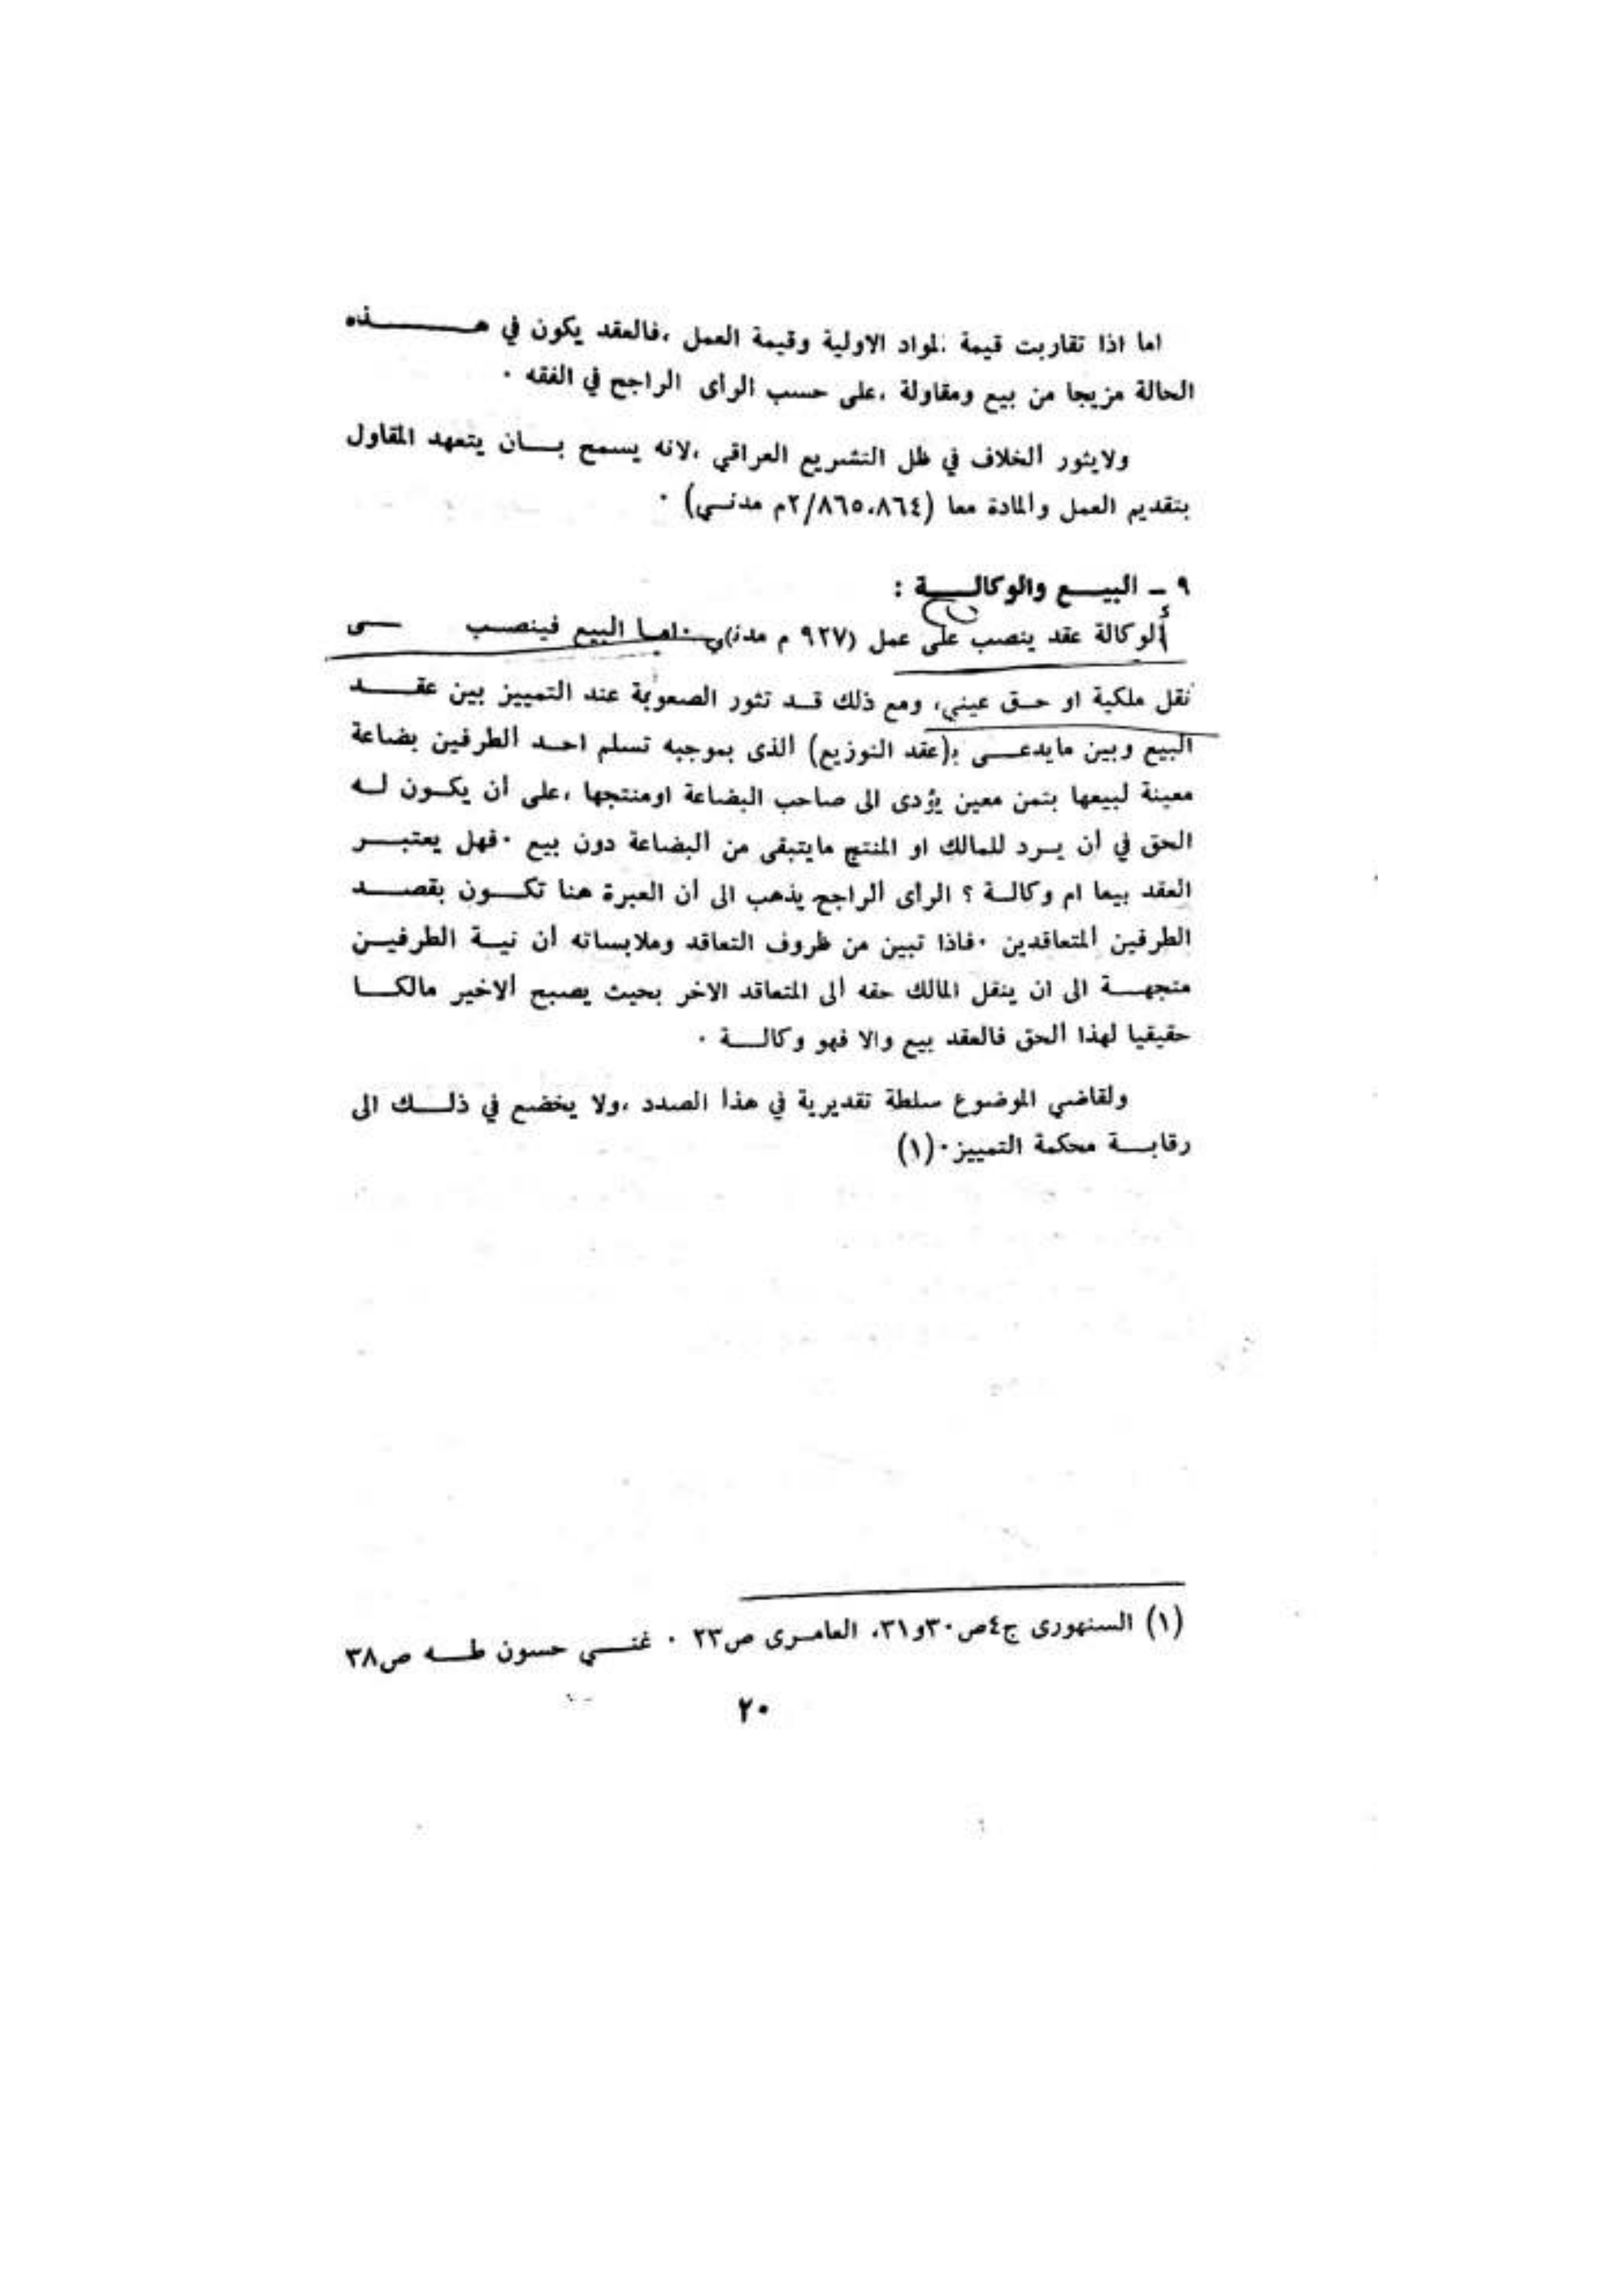 اما اذا تقاربت قيمة المواد الاولية وقيمة العمل ،فالعقد يكون في هــــــذه
الحالة مزيجا من بيع ومقاولة ،على حسب الرأى الراجح في الفقه ٠
ولايثور الخلاف في ظل التشريع العراقي ،لانه يسمح بـــان يتعهد المقاول
بتقديم العمل والمادة معا (٨٦٤،٨٦٥/٢م مدنـي) ٠
٩ ـ البيـــع والوكالـــة :
ألوكالة عقد ينصب على عمل (٩٢٧ م مدني) ٠اما البيع فينصــب
نقل ملكية او حـق عيني، ومع ذلك قــد تثور الصعوبة عند التمييز بين عقــــد
البيع وبين مايدعــى ب(عقد التوزيع) الذى بموجبه تسلم احـد الطرفين بضاعة
معينة لبيعها بثمن معين يؤدى الى صاحب البضاعة اومنتجها ،على ان يكــون لــه
الحق في أن يــرد للمالك او المنتج مايتبقى من البضاعة دون بيع ٠فهل يعتبـــر
العقد بيعا ام وكالــة ؟ الرأى الراجح يذهب الى أن العبرة هنا تكــون بقصـــد
الطرفين المتعاقدين ٠فاذا تبين من ظروف التعاقد وملابساته أن نيــة الطرفيــن
متجهــة الى ان ينقل المالك حقه ألى المتعاقد الاخر بحيث يصبح ألاخير مالكــا
حقيقيا لهذا الحق فالعقد بيع والا فهو وكالـــة ٠
ولقاضي الموضوع سلطة تقديرية في هذا الصدد ،ولا يخضع في ذلـــك الى
رقابـــة محكمة التمييز٠(١)
(١) السنهورى ج٤ص٣٠و٣١، العامـرى ص٢٣ ٠ غنـــي حسون طـــه ص٣٨
٢٠